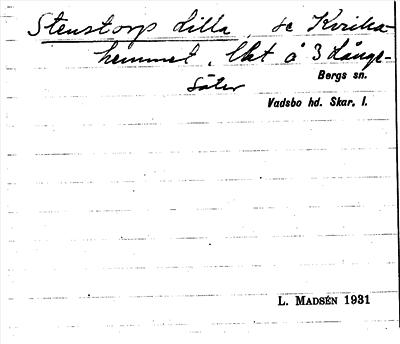 Stenstorp Lilla, se Kvilla-
hemmet, lht å 3 Långe-
säter
Bergs sn.
Vadsbo hd. Skar. l.
L. MADSÉN 1931